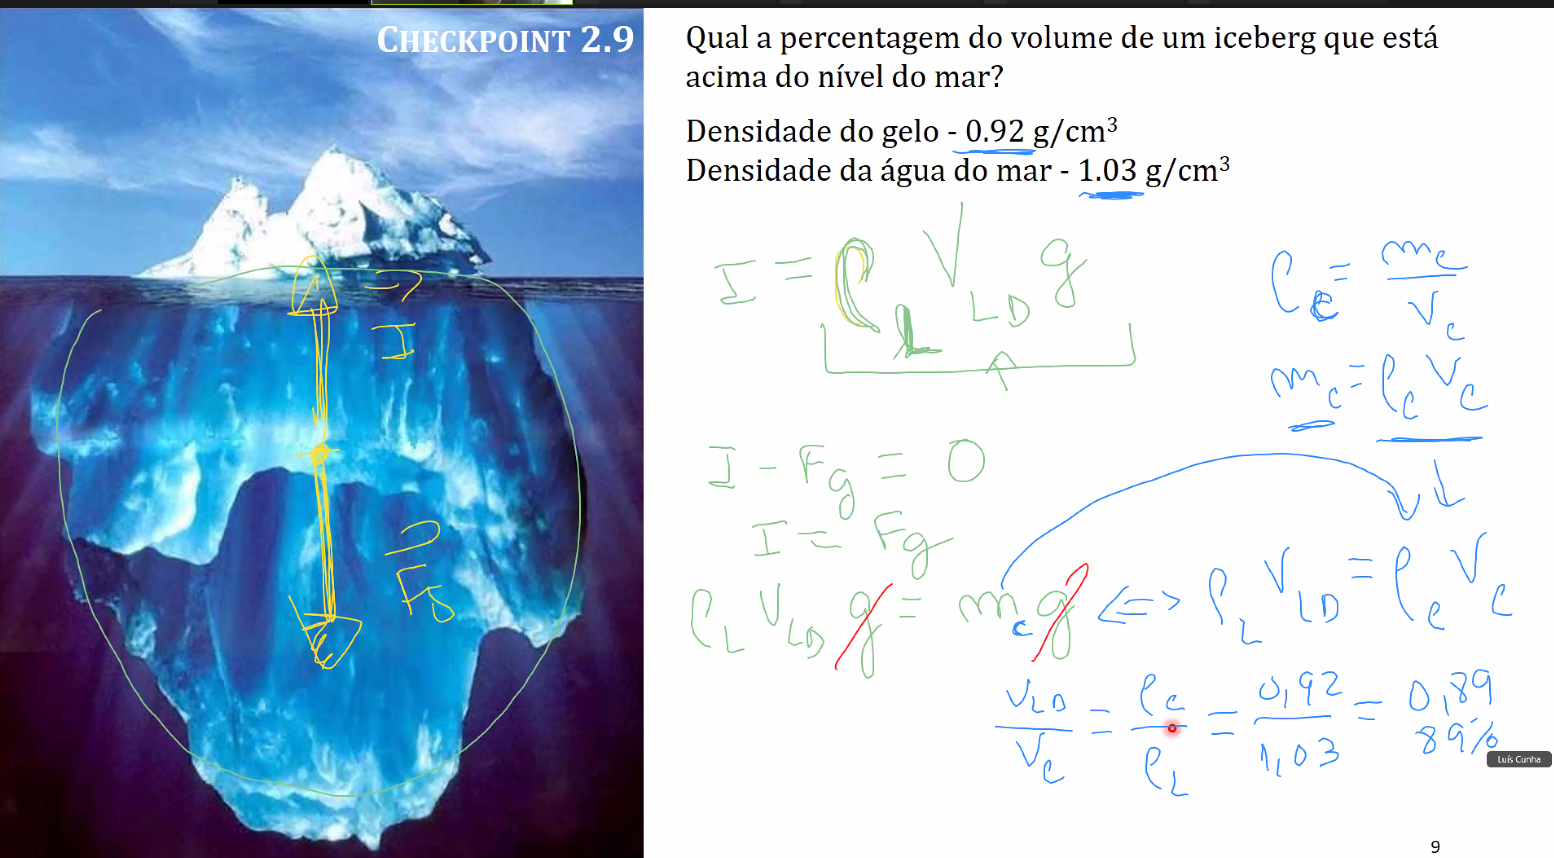 CHECKPOINT 2.9
Qual a percentagem do volume de um iceberg que está
acima do nível do mar?
Densidade do gelo - 0.92 g/cm³
Densidade da água do mar - 1.03 g/cm³
I = ρ_L V_LD g
ρ_c = m_c / V_c
m_c = ρ_c V_c
I
I - F_g = 0
I = F_g
F_g
ρ_L V_LD g = m_c g <=> ρ_L V_LD = ρ_c V_c
V_LD / V_c = ρ_c / ρ_L = 0,92 / 1,03 = 0,89
89%
Luís Cunha
9